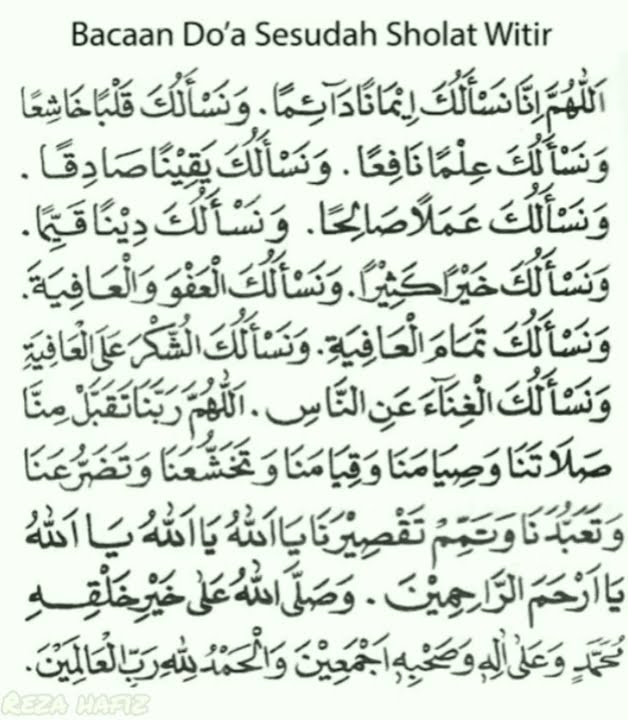 Bacaan Do'a Sesudah Sholat Witir
اَللّٰهُمَّ اِنَّا نَسْأَلُكَ اِيْمَانًا دَآئِمًا. وَنَسْأَلُكَ قَلْبًا خَاشِعًا
وَنَسْأَلُكَ عِلْمًا نَافِعًا. وَنَسْأَلُكَ يَقِيْنًا صَادِقًا.
وَنَسْأَلُكَ عَمَلًا صَالِحًا. وَنَسْأَلُكَ دِيْنًا قَيِّمًا.
وَنَسْأَلُكَ خَيْرًا كَثِيْرًا. وَنَسْأَلُكَ الْعَفْوَ وَالْعَافِيَةَ.
وَنَسْأَلُكَ تَمَامَ الْعَافِيَةِ. وَنَسْأَلُكَ الشُّكْرَ عَلَى الْعَافِيَةِ
وَنَسْأَلُكَ الْغِنَآءَ عَنِ النَّاسِ. اَللّٰهُمَّ رَبَّنَا تَقَبَّلْ مِنَّا
صَلَاتَنَا وَصِيَامَنَا وَقِيَامَنَا وَتَخَشُّعَنَا وَتَضَرُّعَنَا
وَتَعَبُّدَنَا وَتَمِّمْ تَقْصِيْرَنَا يَا اَللّٰهُ يَا اَللّٰهُ يَا اَللّٰهُ
يَا اَرْحَمَ الرَّاحِمِيْنَ. وَصَلَّى اللّٰهُ عَلٰى خَيْرِ خَلْقِهِ
مُحَمَّدٍ وَعَلٰى اٰلِهِ وَصَحْبِهِ اَجْمَعِيْنَ وَالْحَمْدُ لِلّٰهِ رَبِّ الْعَالَمِيْنَ.
REZA HAFIZ